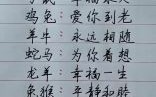 鸡兔：爱你到老
羊牛：永远相随
蛇马：为你着想
龙羊：幸福一生
兔猴：平静和睦